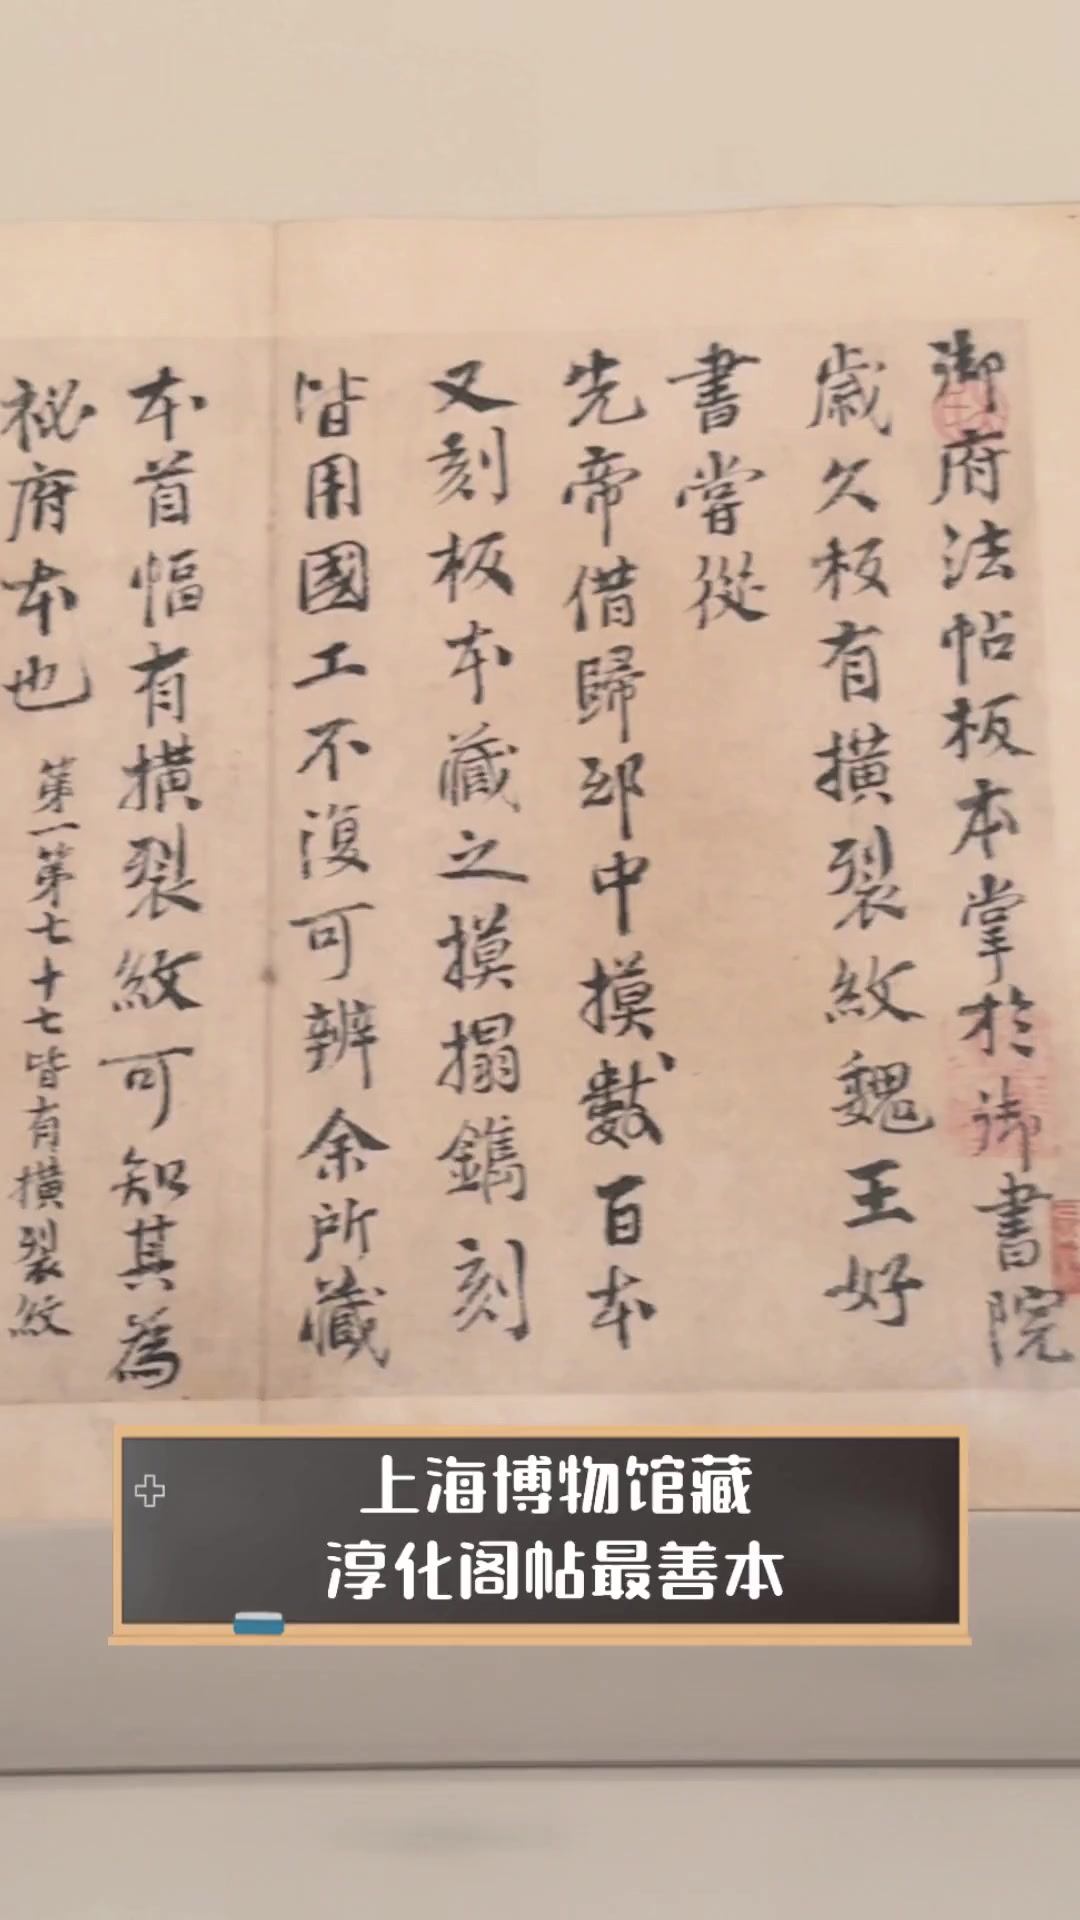 御府法帖板本掌於御書院
歲久板有橫裂紋魏王好
書嘗從
先帝借歸邸中摸數百本
又刻板本藏之摸搨鐫刻
皆用國工不復可辨余所藏
本首幅有橫裂紋可知其為
祕府本也
第一第七十七皆有橫裂紋
上海博物馆藏
淳化阁帖最善本